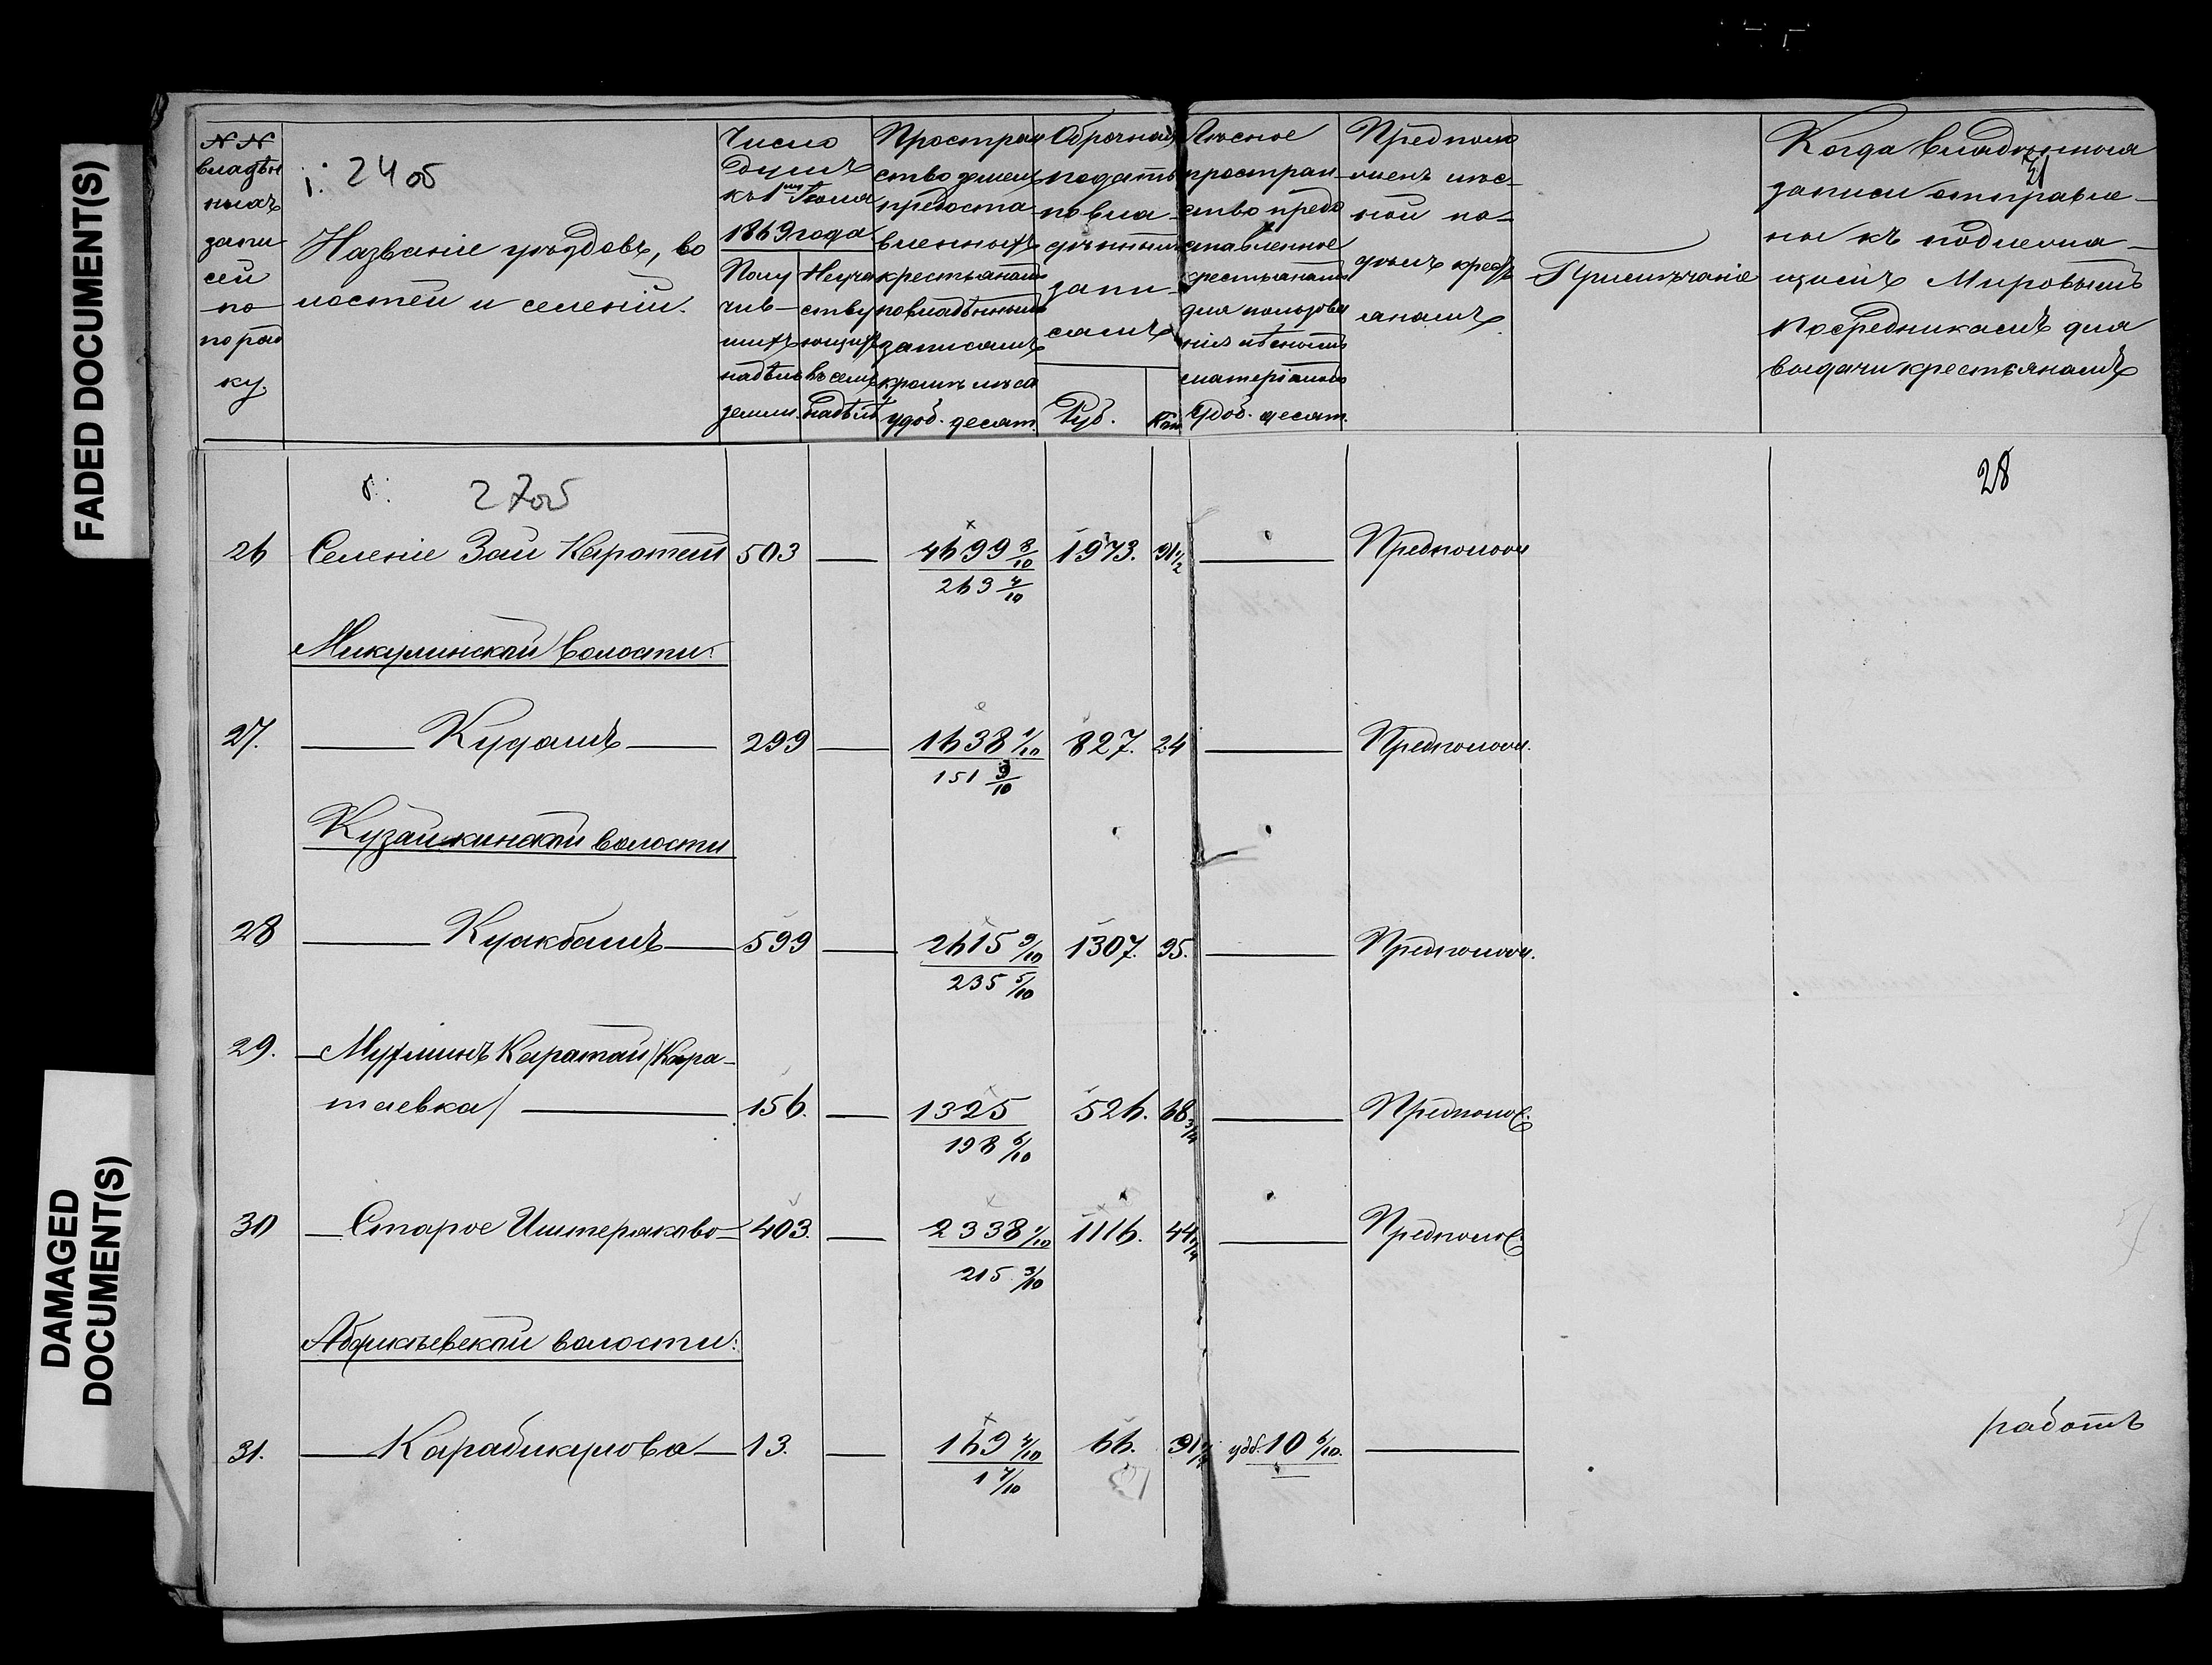 FADED DOCUMENT(S)
DAMAGED DOCUMENT(S)
NN владѣнныхъ записей по порядку
24 об
Названіе уѣздовъ, волостей и селеній.
Число душъ къ 1му Іюля 1869 года
Получившихъ надѣлъ земли.
Неучаствующихъ въ семъ надѣлѣ
Пространство земель предоставленныхъ крестьянамъ по владѣннымъ записямъ кромѣ лѣса удоб. десят.
Оброчная подать по владѣннымъ записямъ
Руб. Коп.
Лѣсное пространство предоставленное крестьянамъ для пользованія лѣснымъ матеріаломъ Удоб. десят.
Предположенъ лѣсной надѣлъ крестьянамъ
Примѣчаніе
Когда владѣнныя записи отправлены къ подлежащимъ Мировымъ посредникамъ для выдачи крестьянамъ
21
27 об
28
26 Селеніе Зай Каратай 503 — 4699 8/10 1973. 91 1/2 — Предполож
263 4/10
Микулинской волости.
27. — Кудашъ — 299 — 1638 1/10 827. 24 — Предполож.
151 9/10
Кузайкинской волости
28 — Куакбашъ — 599 — 2615 9/10 1307. 95. — Предполож.
235 5/10
29. — Муслимъ Каратай /Кара-
таевка/ — 156. — 1325 526. 68 3/4 — Предполож.
198 6/10
30 — Старое Иштеряково — 403. — 2338 1/10 1116. 44 1/4 — Предполож.
215 3/10
Абдикѣевской волости.
31. — Карабикулова — 13. — 169 4/10 66. 91 3/4 удб. 10 6/10. —
1 7/10
работъ